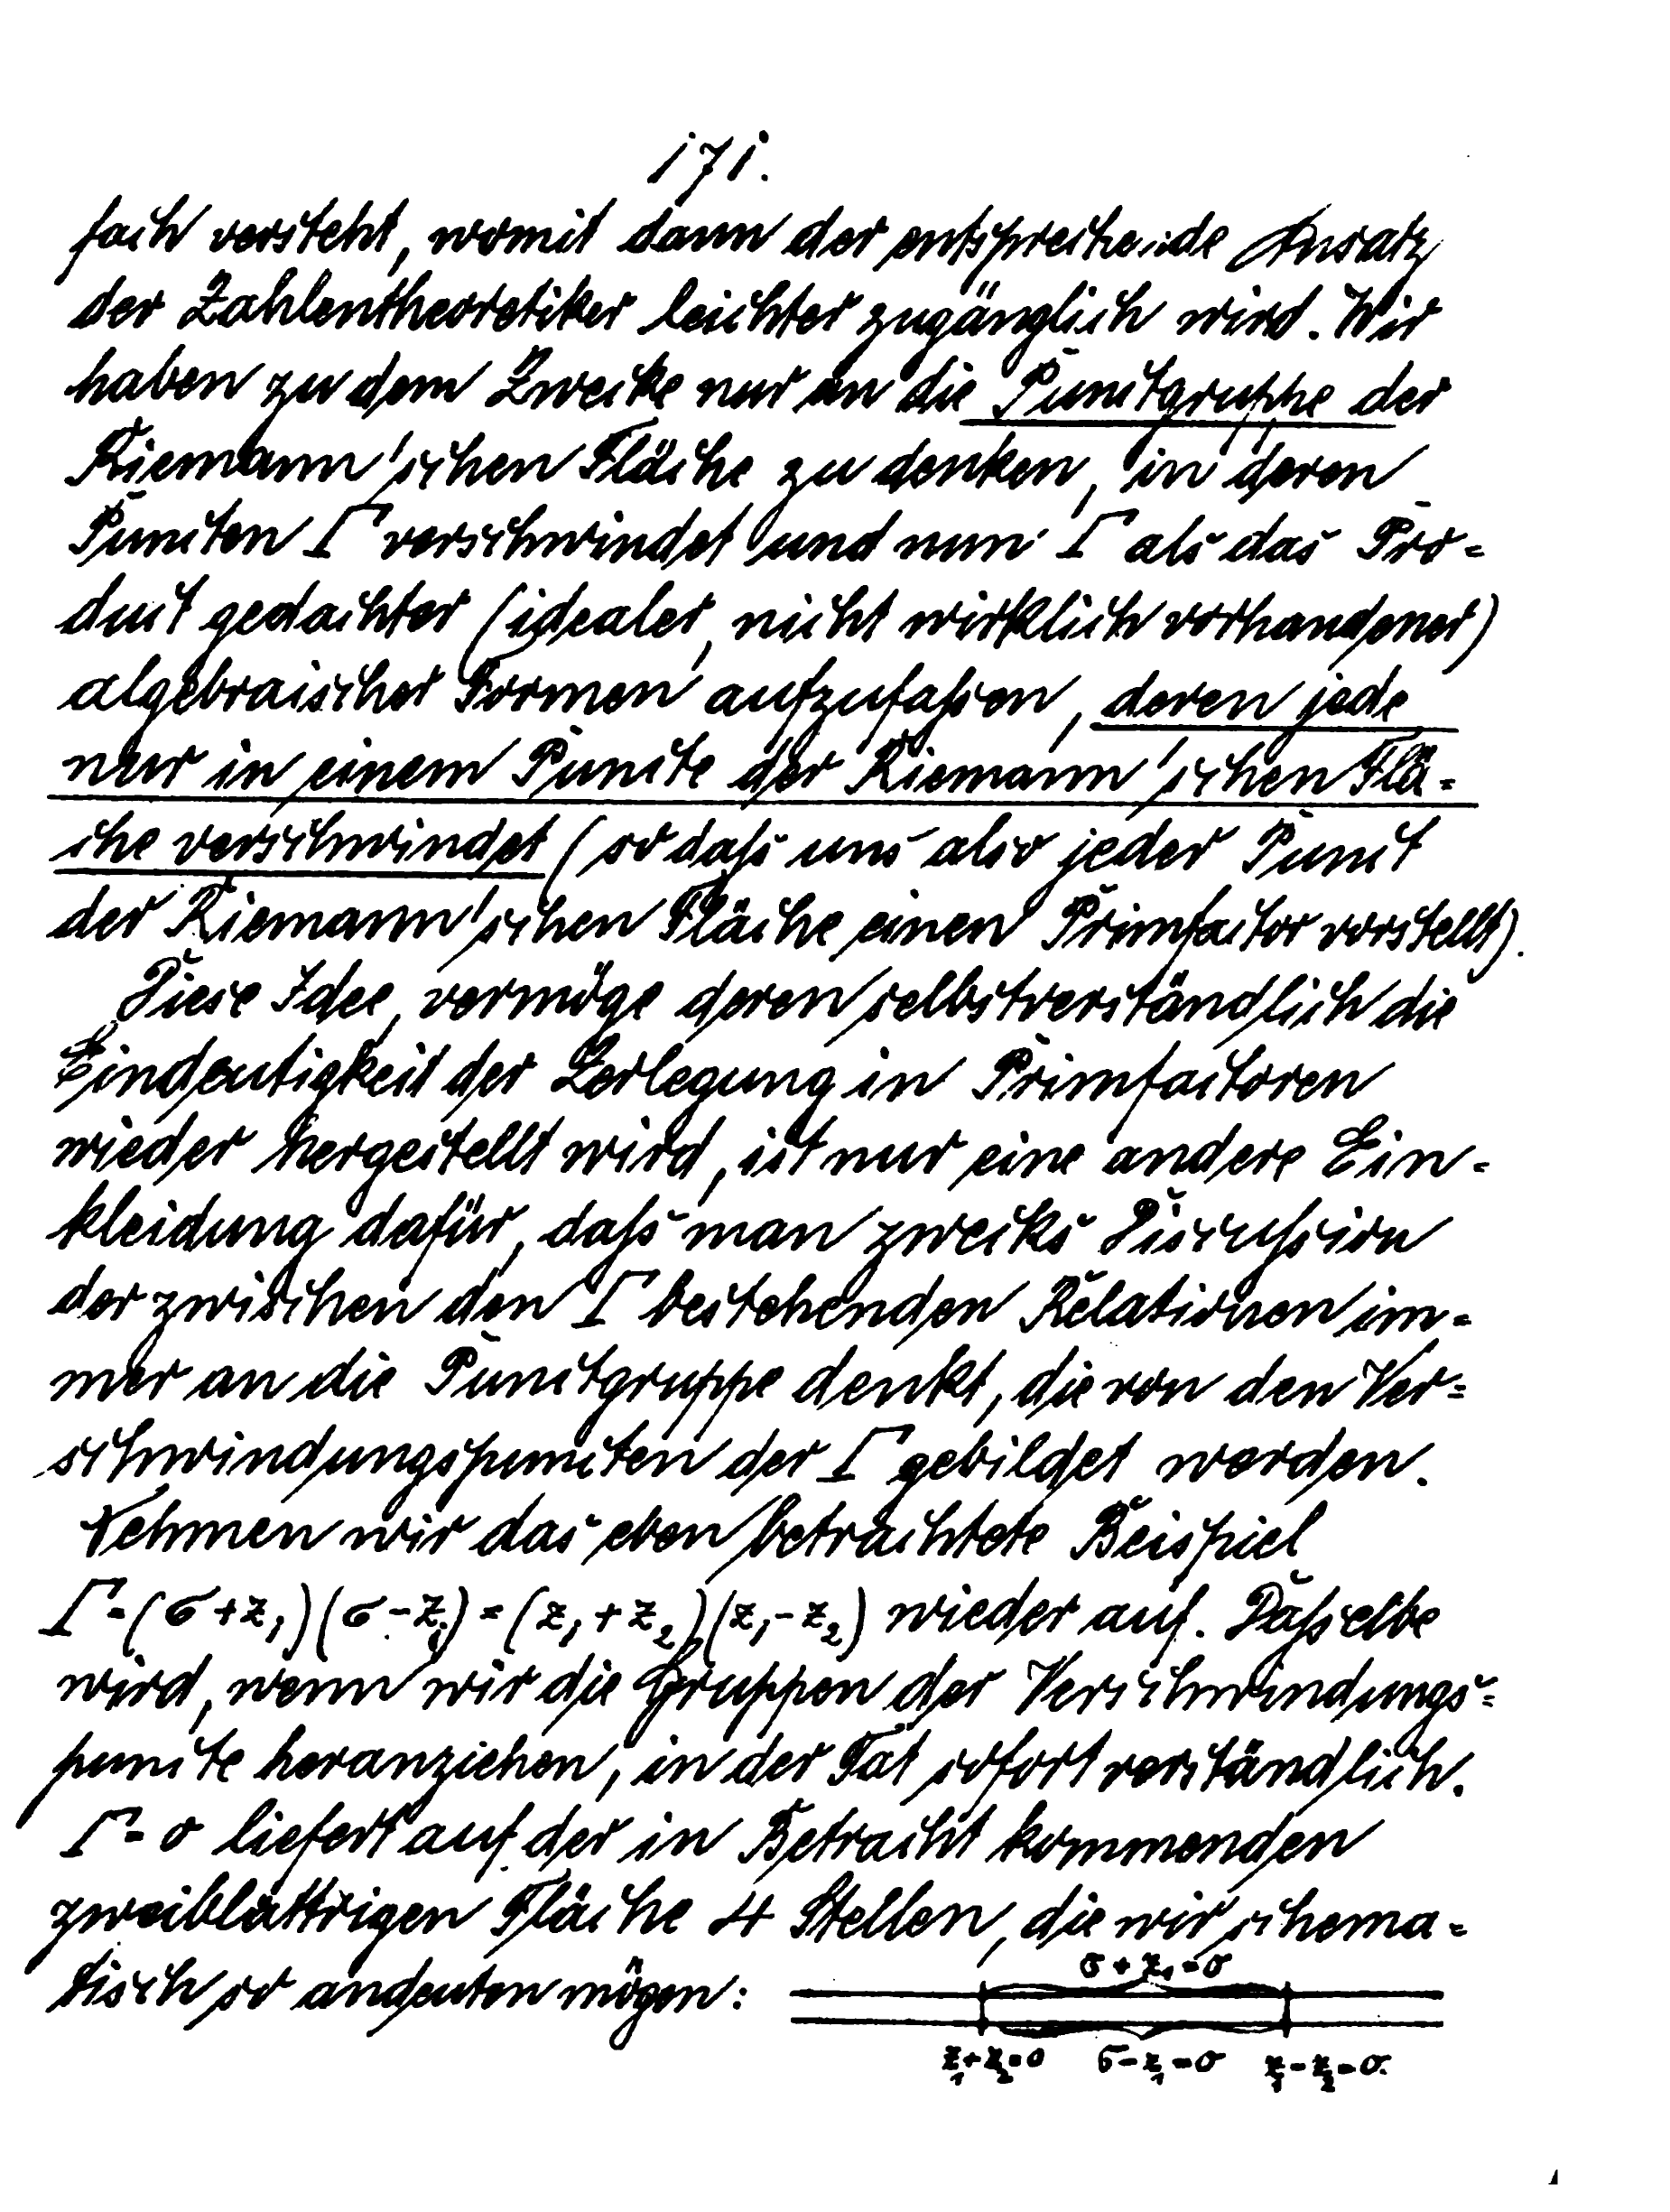 171.
fach versteht, womit dann der entsprechende Ansatz
der Zahlentheoretiker leichter zugänglich wird. Wir
haben zu dem Zwecke nur an die Punctgruppe der
Riemann'schen Fläche zu denken, in deren
Puncten Γ verschwindet und nun Γ als das Pro-
duct gedachter (idealer, nicht wirklich vorhandener)
algebraischer Formen aufzufassen, deren jede
nur in einem Puncte der Riemann'schen Flä-
che verschwindet (so dass uns also jeder Punct
der Riemann'schen Fläche einen Primfactor vorstellt).
Diese Idee, vermöge deren selbstverständlich die
Eindeutigkeit der Zerlegung in Primfactoren
wieder hergestellt wird, ist nur eine andere Ein-
kleidung dafür, dass man zwecks Discussion
der zwischen den Γ bestehenden Relationen im-
mer an die Punctgruppe denkt, die von den Ver-
schwindungspuncten der Γ gebildet werden.
Nehmen wir das eben betrachtete Beispiel
Γ=(σ+z₁)(σ-z₁)=(z₁+z₂)(z₁-z₂) wieder auf. Dasselbe
wird, wenn wir die Gruppen der Verschwindungs-
puncte heranziehen, in der Tat sofort verständlich.
Γ=0 liefert auf der in Betracht kommenden
zweiblättrigen Fläche 4 Stellen, die wir schema-
tisch so andeuten mögen:
σ+z₁=0
z₁+z₂=0 σ-z₁=0 z₁-z₂=0.